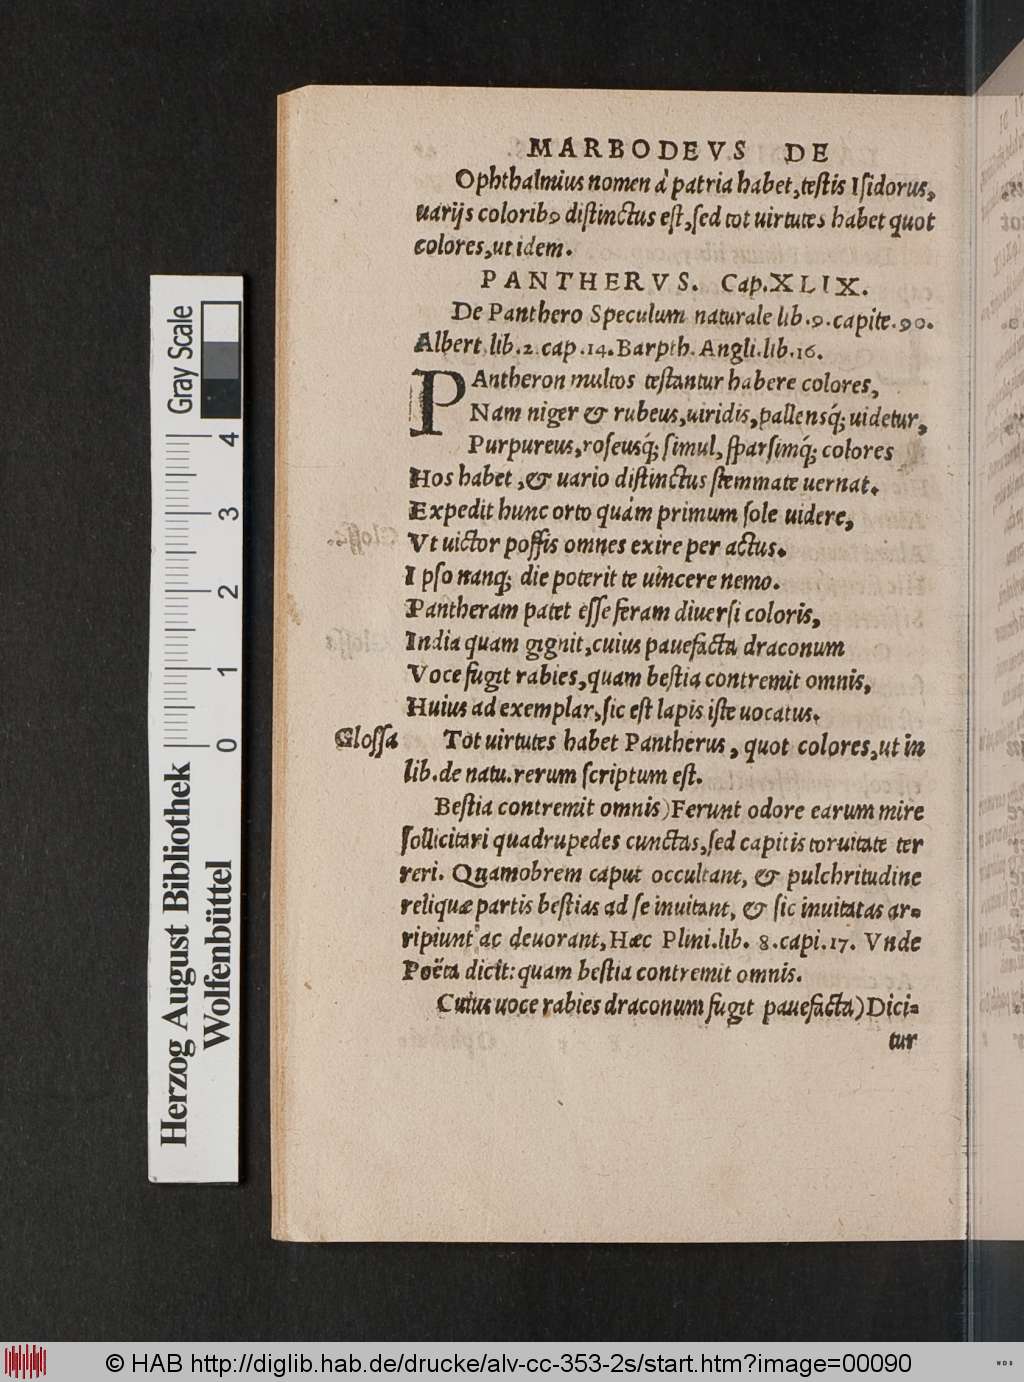 MARBODEVS DE
Ophthalmius nomen à patria habet, testis Isidorus,
uarijs coloribꝰ distinctus est, sed tot uirtutes habet quot
colores, ut idem.
PANTHERVS. Cap. XLIX.
De Panthero Speculum naturale lib. 9. capite. 90.
Albert. lib. 2. cap. 14. Barpth. Angli. lib. 16.
PAntheron multos testantur habere colores,
Nam niger & rubeus, uiridis, pallensq́; uidetur,
Purpureus, roseusq́; simul, sparsimq́; colores
Hos habet, & uario distinctus stemmate uernat.
Expedit hunc orto quám primum sole uidere,
Vt uictor possis omnes exire per actus.
Ipso nanq; die poterit te uincere nemo.
Pantheram patet esse feram diuersi coloris,
India quam gignit, cuius pauefacta draconum
Voce fugit rabies, quam bestia contremit omnis,
Huius ad exemplar, sic est lapis iste uocatus.
Glossa Tot uirtutes habet Pantherus, quot colores, ut in
lib. de natu. rerum scriptum est.
Bestia contremit omnis) Ferunt odore earum mire
sollicitari quadrupedes cunctas, sed capitis toruitate ter
reri. Quamobrem caput occultant, & pulchritudine
reliquæ partis bestias ad se inuitant, & sic inuitatas ar-
ripiunt ac deuorant, Hæc Plini. lib. 8. capi. 17. Vnde
Poëta dicit: quam bestia contremit omnis.
Cuius uoce rabies draconum fugit pauefacta) Dici-
tur
Gray Scale
4
3
2
1
0
Herzog August Bibliothek
Wolfenbüttel
© HAB http://diglib.hab.de/drucke/alv-cc-353-2s/start.htm?image=00090